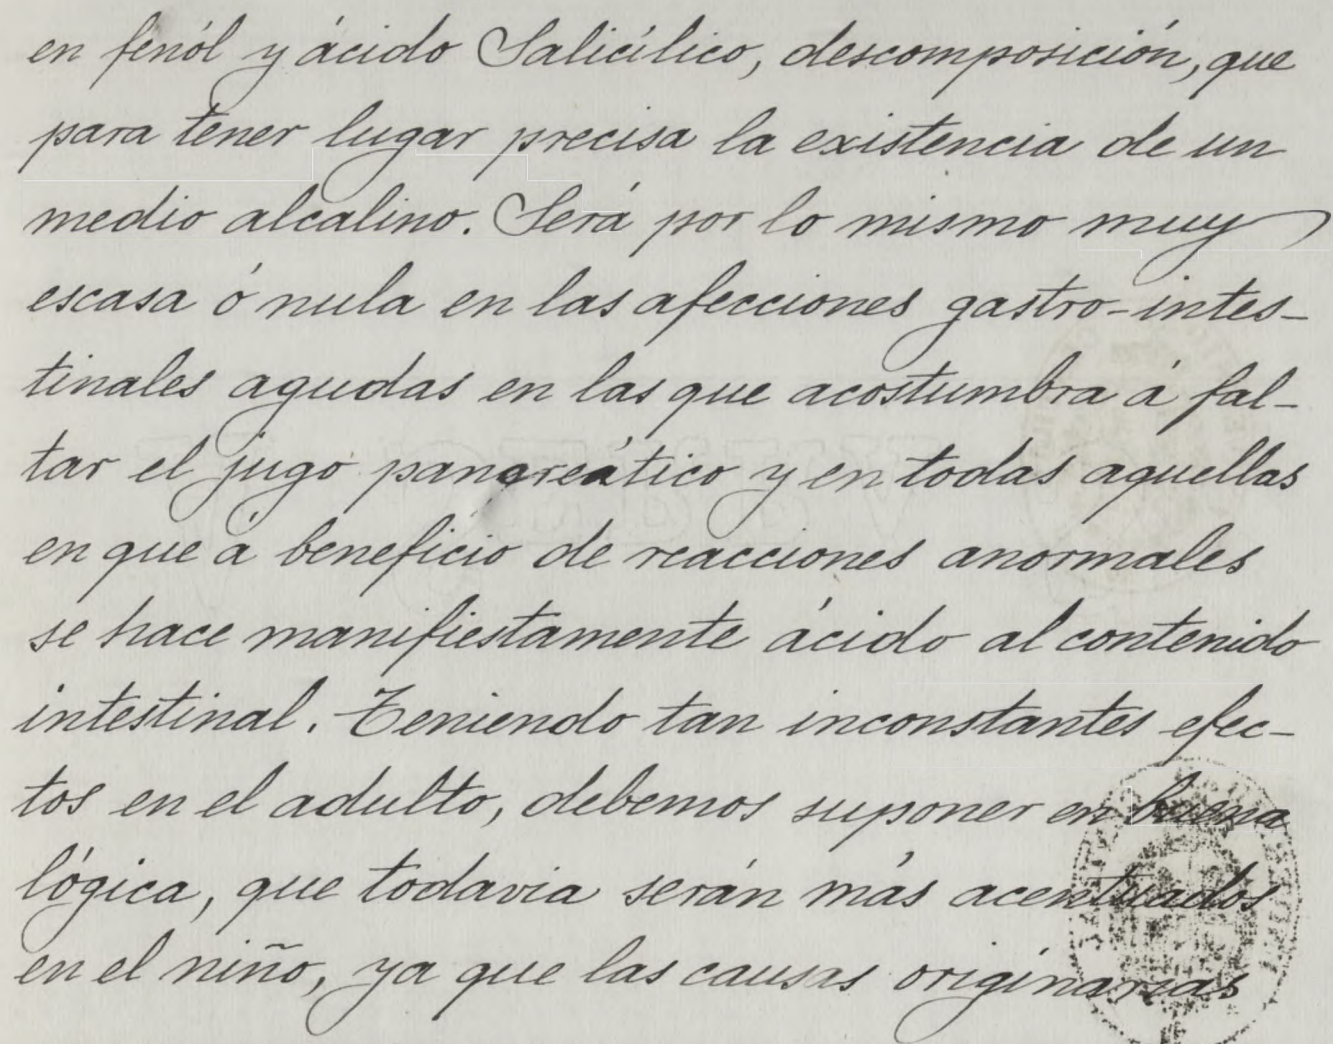 en fenól y ácido Salicílico, descomposición, que
para tener lugar precisa la existencia de un
medio alcalino. Será por lo mismo muy
escasa ó nula en las afecciones gastro-intes-
tinales agudas en las que acostumbra á fal-
tar el jugo pancreático y en todas aquellas
en que á beneficio de reacciones anormales
se hace manifiestamente ácido al contenido
intestinal. Teniendo tan inconstantes efec-
tos en el adulto, debemos suponer en buena
lógica, que todavia serán más acentuados
en el niño, ya que las causas originarias